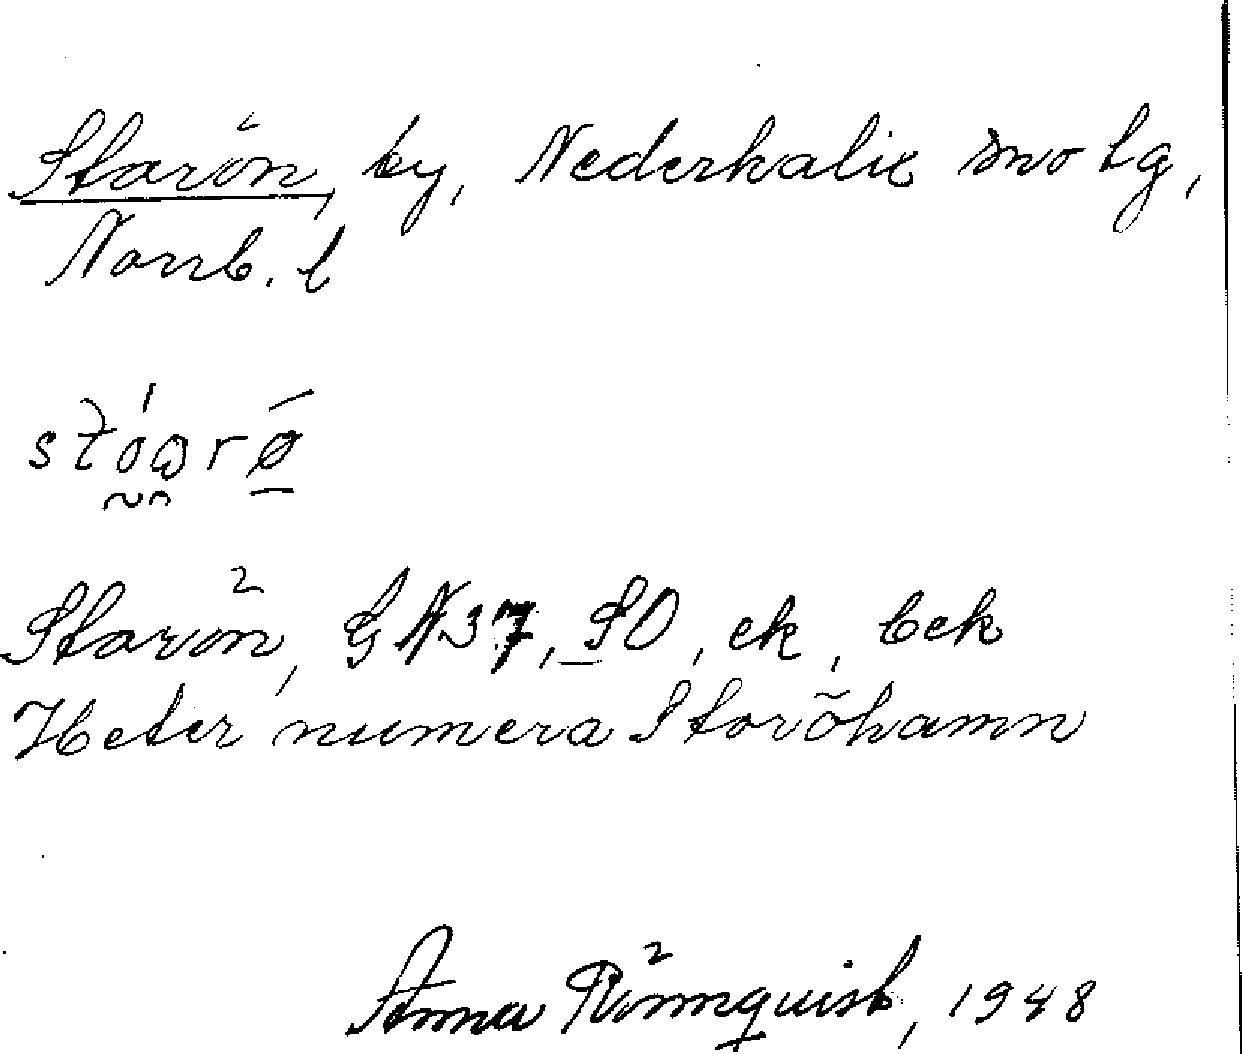 Storön, by, Nederkalix sno tg,
Norrb. l
Storön, GN37, SO, ek, bek
Heter numera Storöhamn
Anna Rönnquist, 1948